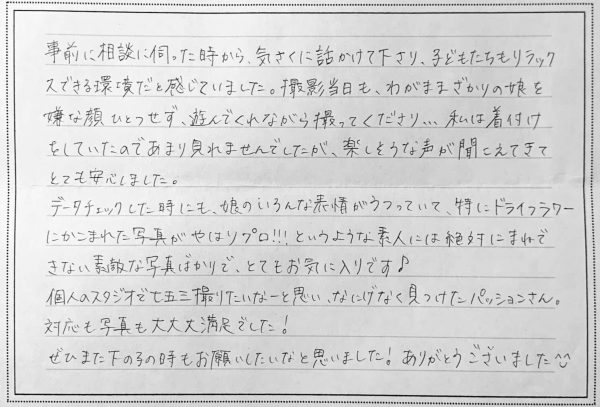 事前に相談に伺った時から、気さくに話かけて下さり、子どもたちもリラック
スできる環境だと感じていました。撮影当日も、わがままざかりの娘を
嫌な顔ひとつせず、遊んでくれながら撮ってくださり… 私は着付け
をしていたのであまり見れませんでしたが、楽しそうな声が聞こえてきて
とても安心しました。
データチェックした時にも、娘のいろんな表情がうつっていて、特にドライフラワー
にかこまれた写真がやはりプロ!!!というような素人には絶対にまねで
きない素敵な写真ばかりで、とてもお気に入りです♪
個人のスタジオで七五三撮りたいなーと思い、なにげなく見つけたパッションさん。
対応も写真も大大大満足でした!
ぜひまた下の子の時もお願いしたいなと思いました! ありがとうございました^^